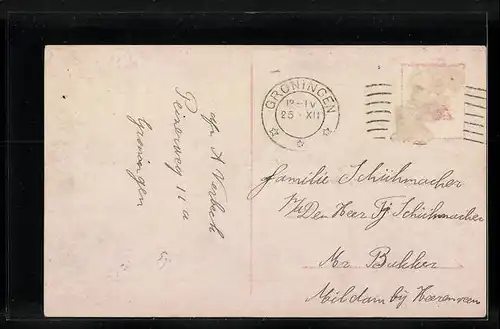 afz. A Verbeek
Peizerweg 11 a
Groningen
GRONINGEN
12-1V
25 XII
Familie Schuhmacher
p/a Den Heer Fj Schuhmacher
Mr Bakker
Mildam bij Heerenveen